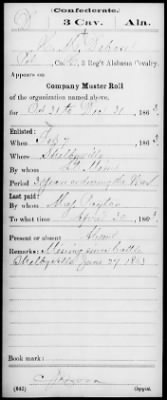 (Confederate.)
D 3 Cav. Ala.
Co. 3 Reg't Alabama Cavalry.
Appears on
Company Muster Roll
of the organization named above,
for Oct 31 to Dec 31, 1863.
Enlisted:
When Feb 7, 186
Where Shelbyville
By whom
Period 3 years or during the War
Last paid:
By whom Maj.
To what time April 30, 1863.
Present or absent Absent
Remarks: Missing since battle
Shelbyville June 27 1863
Book mark:
(642) Copyist.